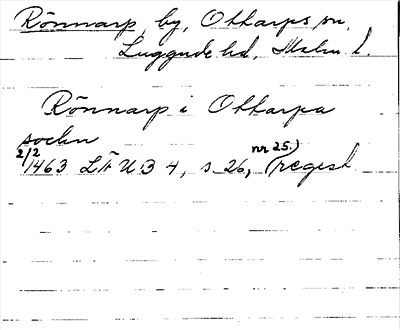 Rönnarp, by, Ottarps sn,
Luggude hd, Malm. l.
Rönnarp i Ottarpa
sockn
2/2 1463 LÄUB 4, s 26, nr 25.) (regest